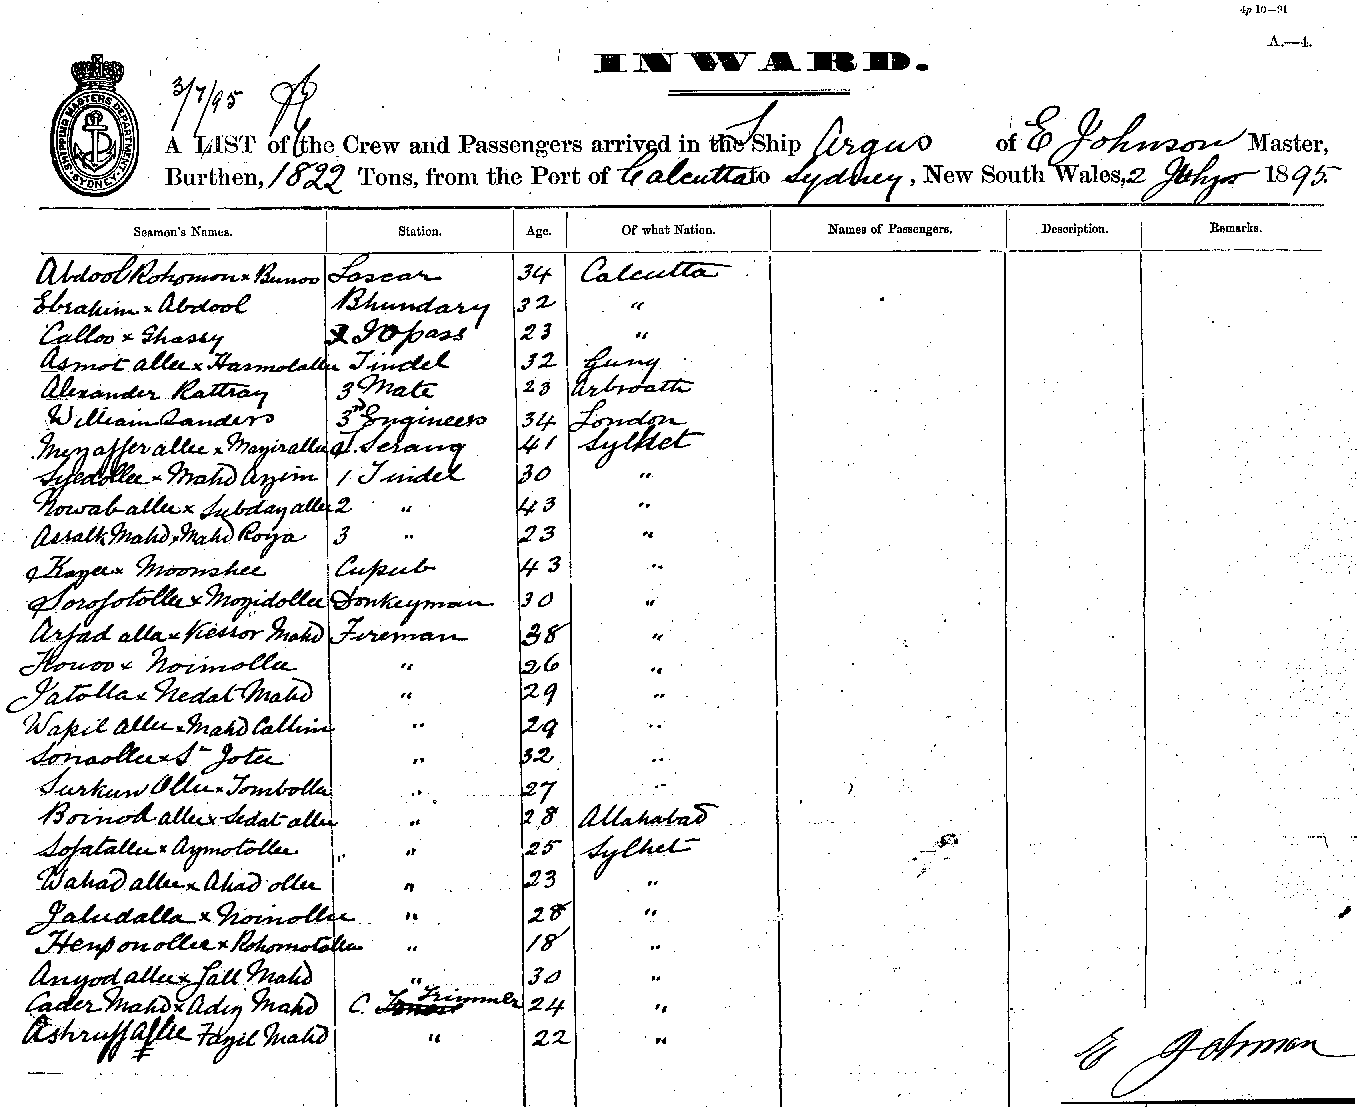 4p 10—91
A.—4.
INWARD.
SHIPPING MASTERS DEPARTMENT SYDNEY
3/7/95
A LIST of the Crew and Passengers arrived in the Ship Argus of E Johnson Master,
Burthen, 1822 Tons, from the Port of Calcutta to Sydney, New South Wales, 2 July 1895.
Seamen's Names. Station. Age. Of what Nation. Names of Passengers. Description. Remarks.
Abdool Rohomon x Bunoo Lascar 34 Calcutta
Ebrahim x Abdool Bhundary 32 "
Calloo x Ghassy Topass 23 "
Asmot allee x Hasmotallee Tindel 32 Guny
Alexander Rattray 3 Mate 23 Arbroath
William Sanders 3rd Engineers 34 London
Mozaffer allee x Manirallee Serang 41 Sylhet
Syedollee x Mahd Azim 1 Tindel 30 "
Nowab allee x Subday allee 2 " 43 "
Assalk Mahd x Mahd Roya 3 " 23 "
Moonshee 43 "
Sorofotollee x Mozidollee Donkeyman 30 "
Arfad alla x Kessor Mahd Fireman 38 "
x Noimolla " 26 "
Jatolla x Nedat Mahd " 29 "
Wakil Allee x Mahd Callim " 29 "
Sonaollee x Sk Jotee " 32 "
Surkun Allee x Tombolla " 27 "
Boinod allee x Sedat allee " 28 Allahabad
Sofatallee x Aymotollee " 25 Sylhet
Wahad allee x Ahad ollee " 23 "
Jaludalla x Noinollee " 28 "
x Rohomotallee " 18 "
Anyod allee x Lall Mahd " 30 "
Cader Mahd x Adiz Mahd C. Trimmer 24 "
Ashruff Allee Fazil Mahd " 22 "
E Johnson